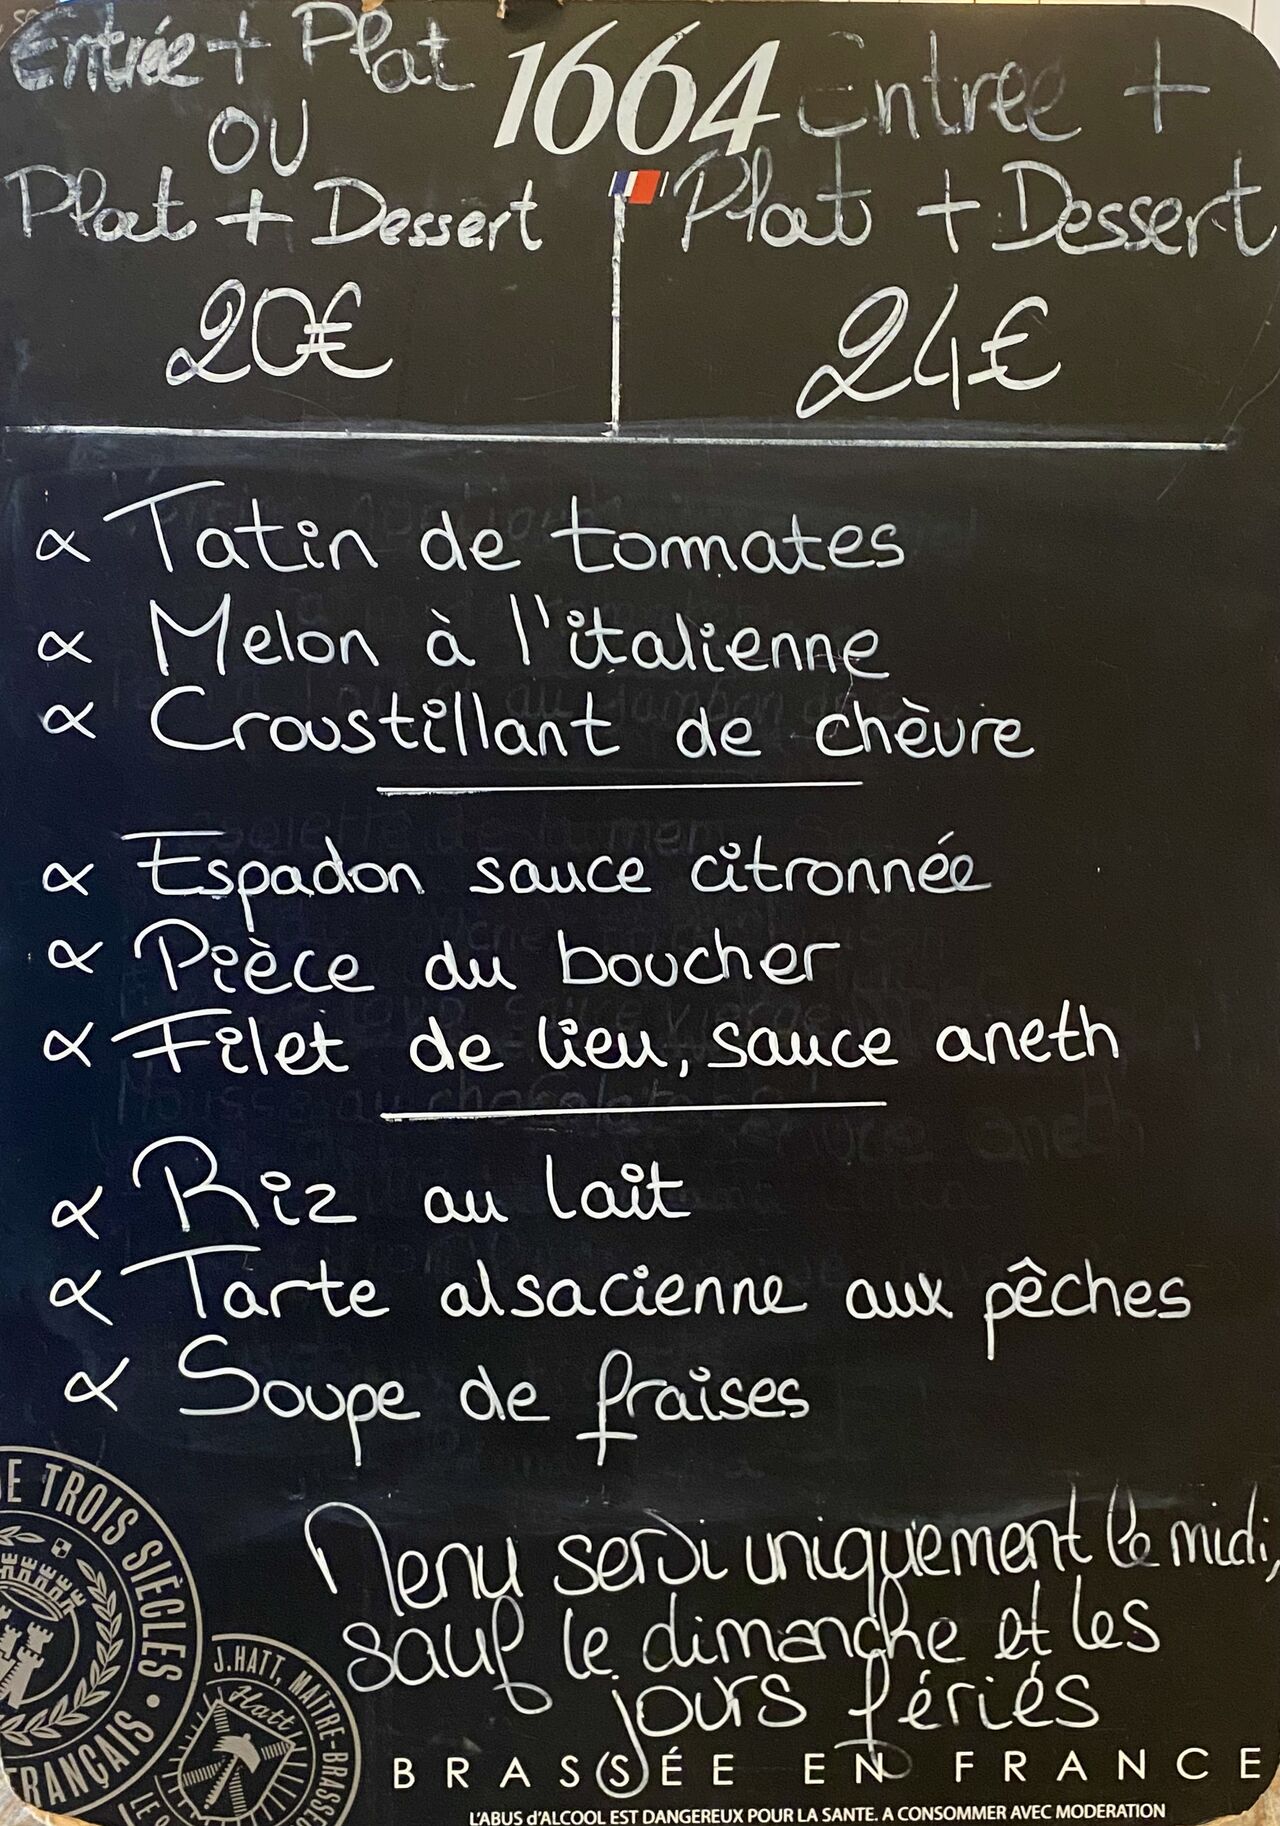 Entrée + Plat
OU
Plat + Dessert
20€
1664
Entrée +
Plat + Dessert
24€
∝ Tatin de tomates
∝ Melon à l'italienne
∝ Croustillant de chèvre
∝ Espadon sauce citronnée
∝ Pièce du boucher
∝ Filet de lieu, sauce aneth
∝ Riz au lait
∝ Tarte alsacienne aux pêches
∝ Soupe de fraises
Menu servi uniquement le midi,
sauf le dimanche et les
jours fériés
E TROIS SIÈCLES •
FRANÇAIS •
J.HATT, MAITRE-BRASSE
Hatt
LE
BRASSÉE EN FRANCE
L'ABUS d'ALCOOL EST DANGEREUX POUR LA SANTE. A CONSOMMER AVEC MODERATION